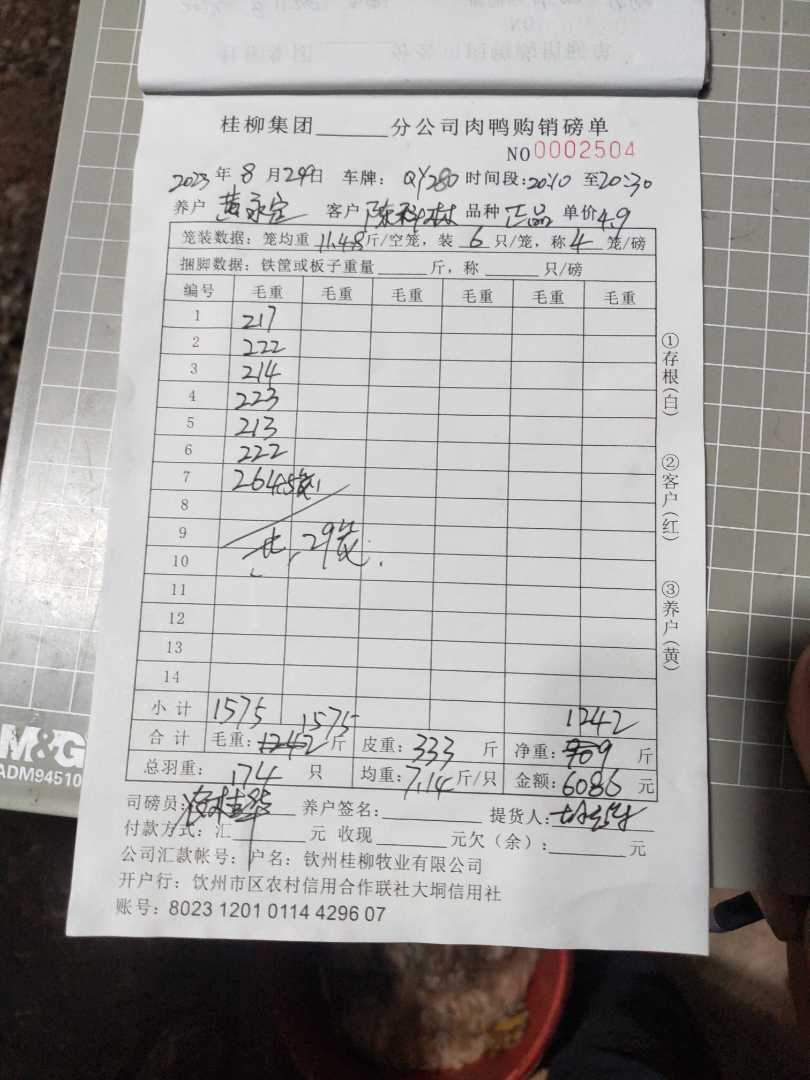 桂柳集团______分公司肉鸭购销磅单
NO 0002504
2023年8月29日 车牌：QY280 时间段：20:10至20:30
养户 黄永定 客户 陈科林 品种 正品 单价4.9
笼装数据：笼均重11.48斤/空笼，装6只/笼，称4笼/磅
捆脚数据：铁筐或板子重量______斤，称______只/磅
编号 毛重 毛重 毛重 毛重 毛重 毛重
1 217
2 222
3 214
4 223
5 213
6 222
7 264
8
9
29笼
10
11
12
13
14
小计 1575
1575 1242
合计 毛重：1242斤 皮重：333斤 净重：909斤
总羽重：174只 均重：7.14斤/只 金额：6086元
司磅员： 养户签名：______ 提货人：
付款方式：汇______元 收现______元欠（余）：______元
公司汇款帐号：户名：钦州桂柳牧业有限公司
开户行：钦州市区农村信用合作联社大垌信用社
账号：8023 1201 0114 4296 07
①存根(白)
②客户(红)
③养户(黄)
M&G
ADM94510